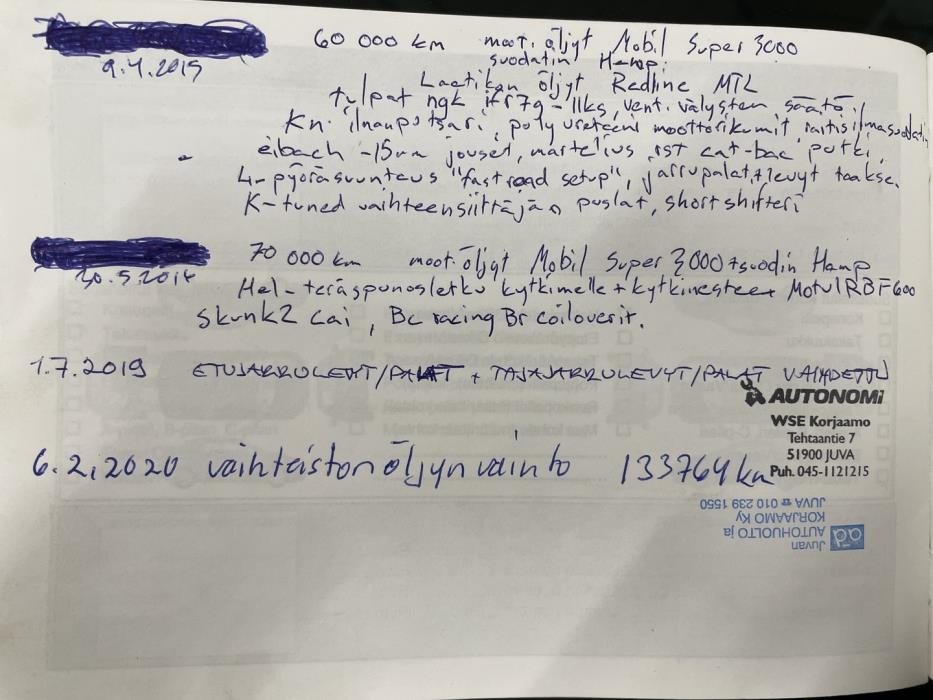 9.4.2015
60 000 km moot. öljyt Mobil Super 3000
suodatin Hamp.
Laatikon öljyt Redline MTL
tulpat ngk ifr7g-11ks, vent. välysten säätö,
Kn ilmanputsari, polyureteeni moottorikumit, raitisilmasuodatin
eibach -15mm jouset, martelius rst cat-bac putki,
4-pyöräsuuntaus "fast road setup", jarrupalat+levyt taakse.
K-tuned vaihteensiittäjän puslat, short shifteri
70 000 km moot. öljyt Mobil Super 3000 + suodin Hamp
Hel-teräspunosletku kytkimelle + kytkinneste Motul RBF600
Skunk2 cai, Bc racing Br coiloverit.
1.7.2019 ETUJARRULEVYT/PALAT + TAJAJARRULEVYT/PALAT VAIHDETTU
AUTONOMi
WSE Korjaamo
Tehtaantie 7
51900 JUVA
Puh. 045-1121215
6.2.2020 vaihteistonöljynvainto 133764km
Juvan
AUTOHUOLTO ja
KORJAAMO Ky
JUVA ☎ 010 239 1550